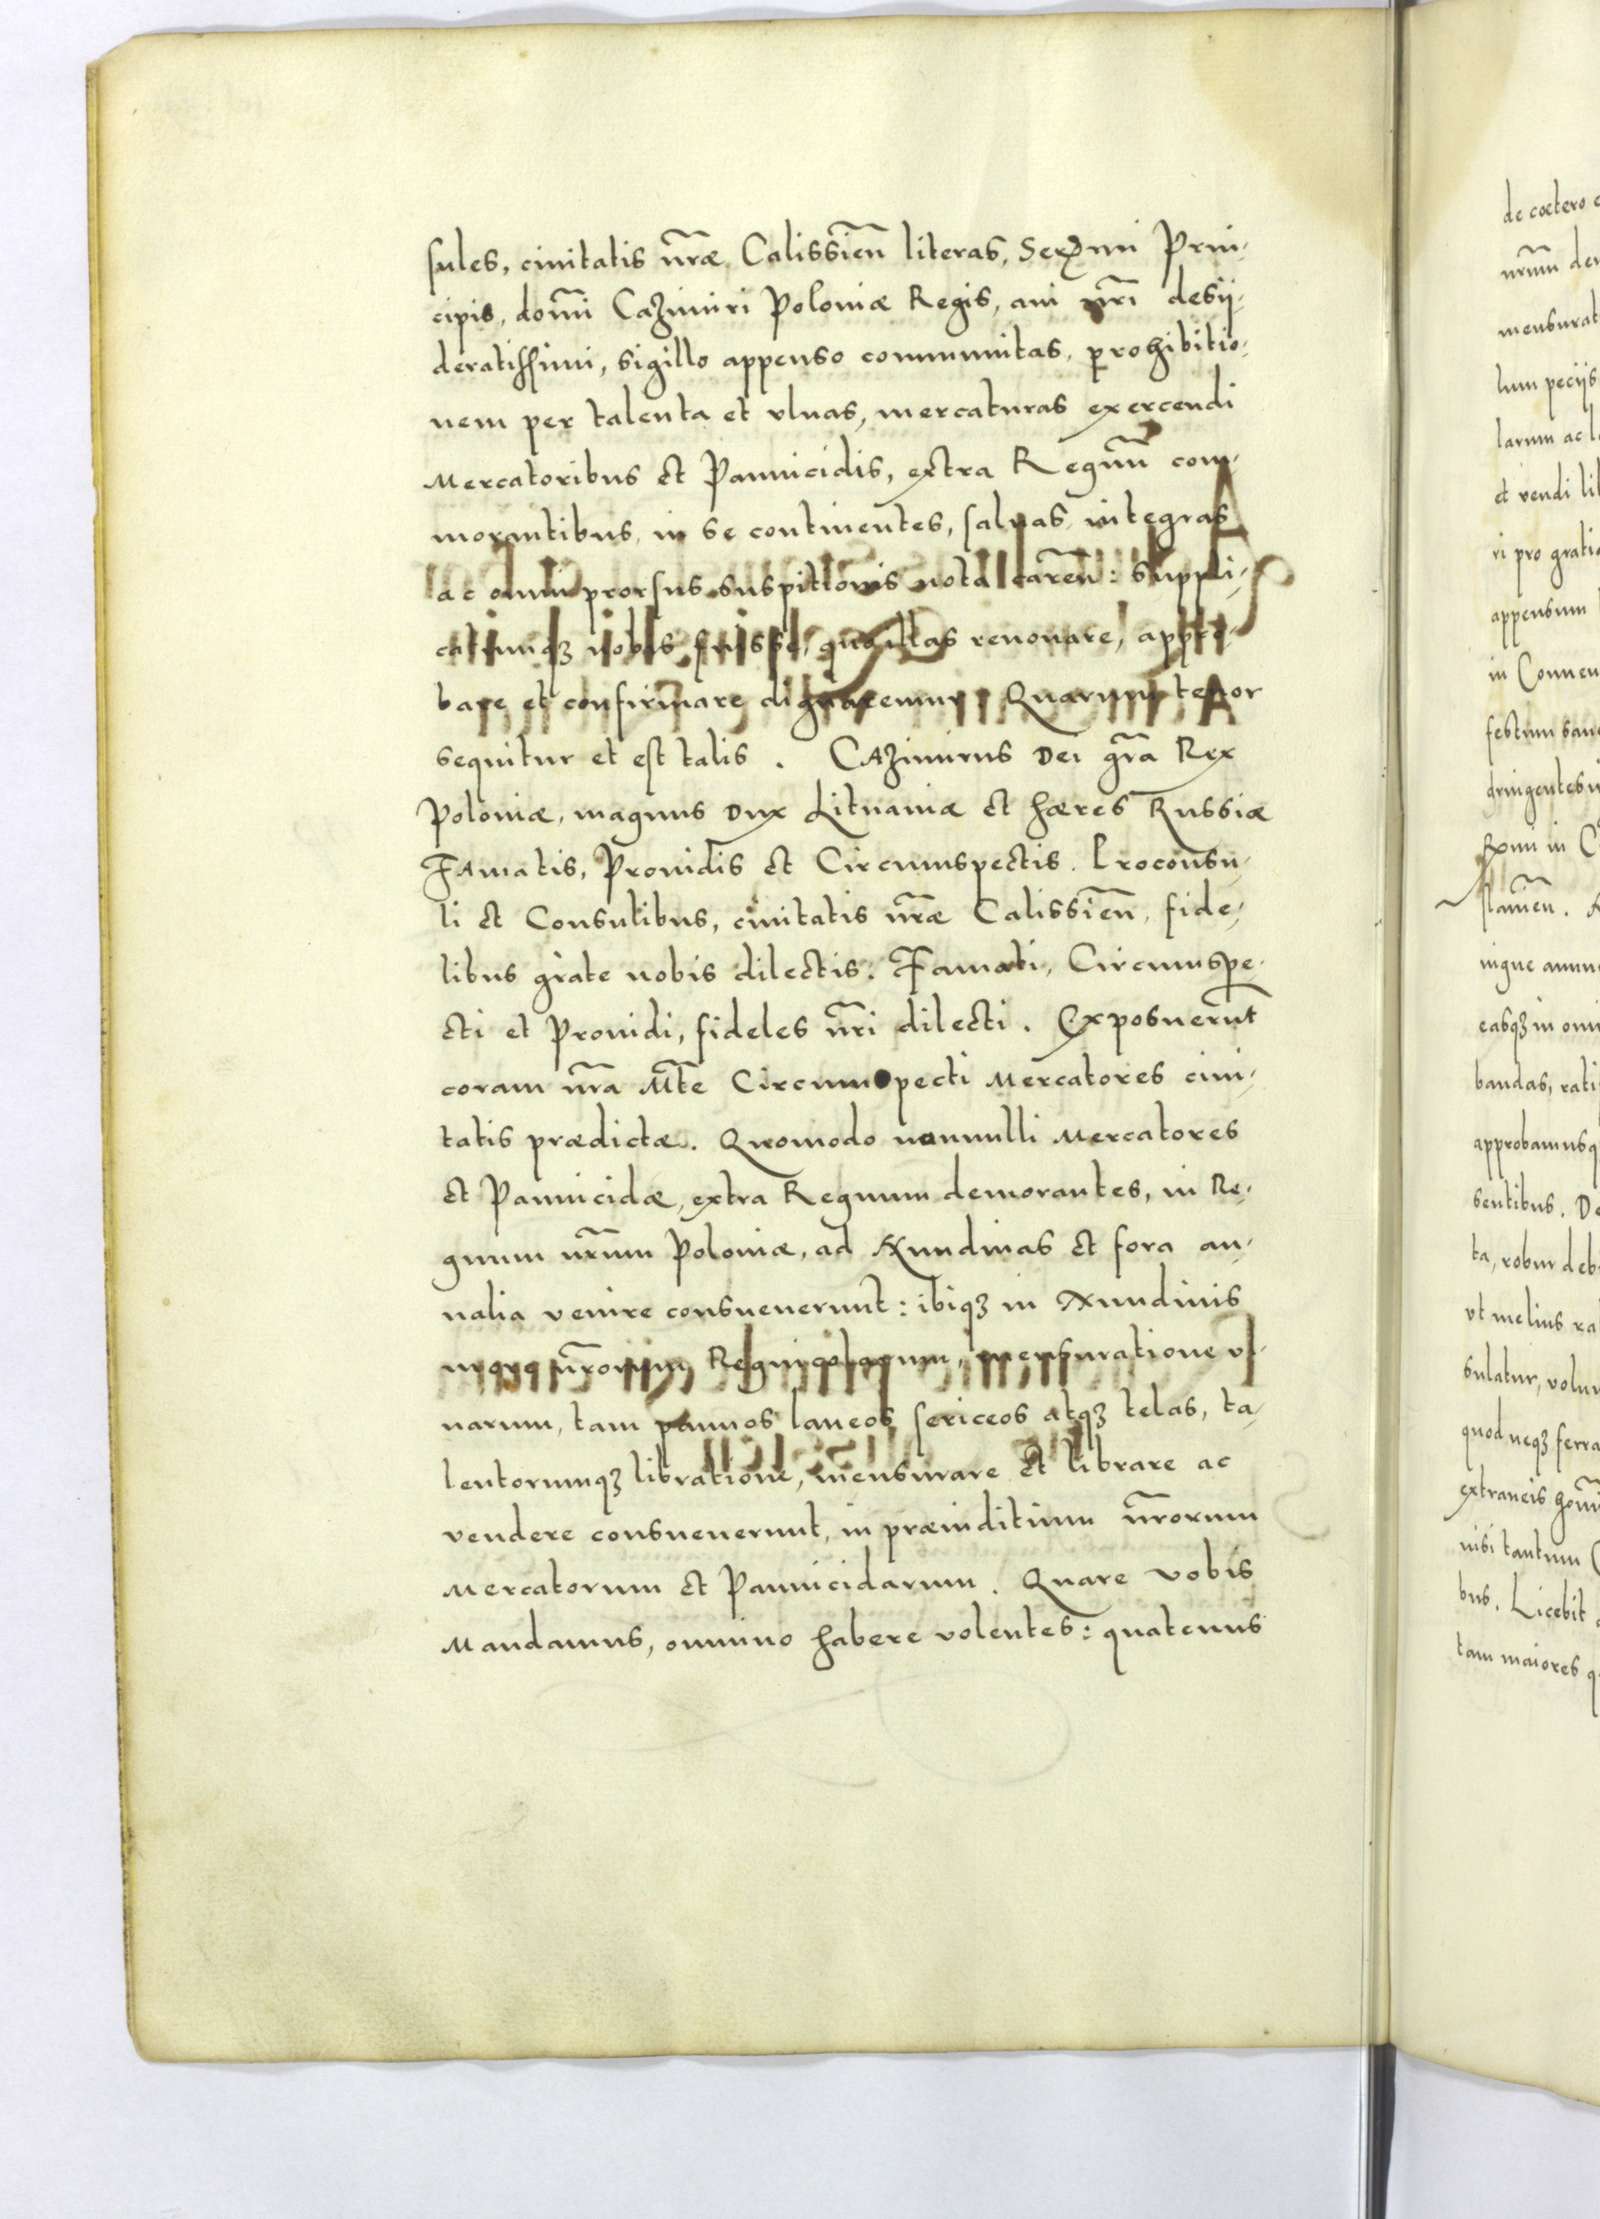 sules, ciuitatis nr̃æ Calissieñ literas, Ser̃mi Prin,
cipis, domi̅ Cazimiri Poloniæ Regis, aui nr̃i desij,
deratissimi, sigillo appenso communitas, prohibitio,
nem per talenta et vlnas, mercaturas exercendi
Mercatoribus et Pannicidis, extra Regnu̅ com,
morantibus, in se continentes, saluas, integras
ac omni prorsus suspitionis nota careñ: Suppli,
catumqꝫ nobis fuisse, quo illas renouare, appro,
bare et confirmare dignaremur. Quarum tenor
sequitur et est talis. CAzimirus Dei gr̃a Rex
Poloniæ, magnus Dux Lituaniæ et hæres Russiæ
FAmatis, Prouidis et Circumspectis. Proconsu,
li et Consulibus, ciuitatis nr̃æ Calissieñ, fide,
libus grate nobis dilectis. Famati, Circumspe,
cti et Prouidi, fideles nr̃i dilecti. Exposuerunt
coram nr̃a Mt̃e Circumspecti Mercatores ciui,
tatis prædictæ. Quomodo nonnulli Mercatores
et Pannicidæ, extra Regnum demorantes, in Re,
gnum nr̃um Poloniæ, ad Nundinas et fora an,
nalia venire consueuerunt: ibiqꝫ in Nundinis
nr̃orum Regni, mensuratione vl,
narum, tam pannos laneos sericeos atqꝫ telas, ta,
lentorumqꝫ libratione, mensurare et librare ac
vendere consueuerunt, in præiuditium nr̃orum
Mercatorum et Pannicidarum. Quare vobis
Mandamus, omnino habere volentes: quatenus
de cœtero
nr̃um
mensurat
lum pecijs
larum ac
et vendi
ri pro grati
appensum
in Conuen
festum sanc
dringentes
in
. 
nigne annu
easqꝫ in omn
bandas, rati
approbamusq
sentibus. De
ta, robur deb
vt melius ra
sulatur, volu
quod neqꝫ ferra
extraneis
nisi tantum
bus. Licebit
tam maiores q